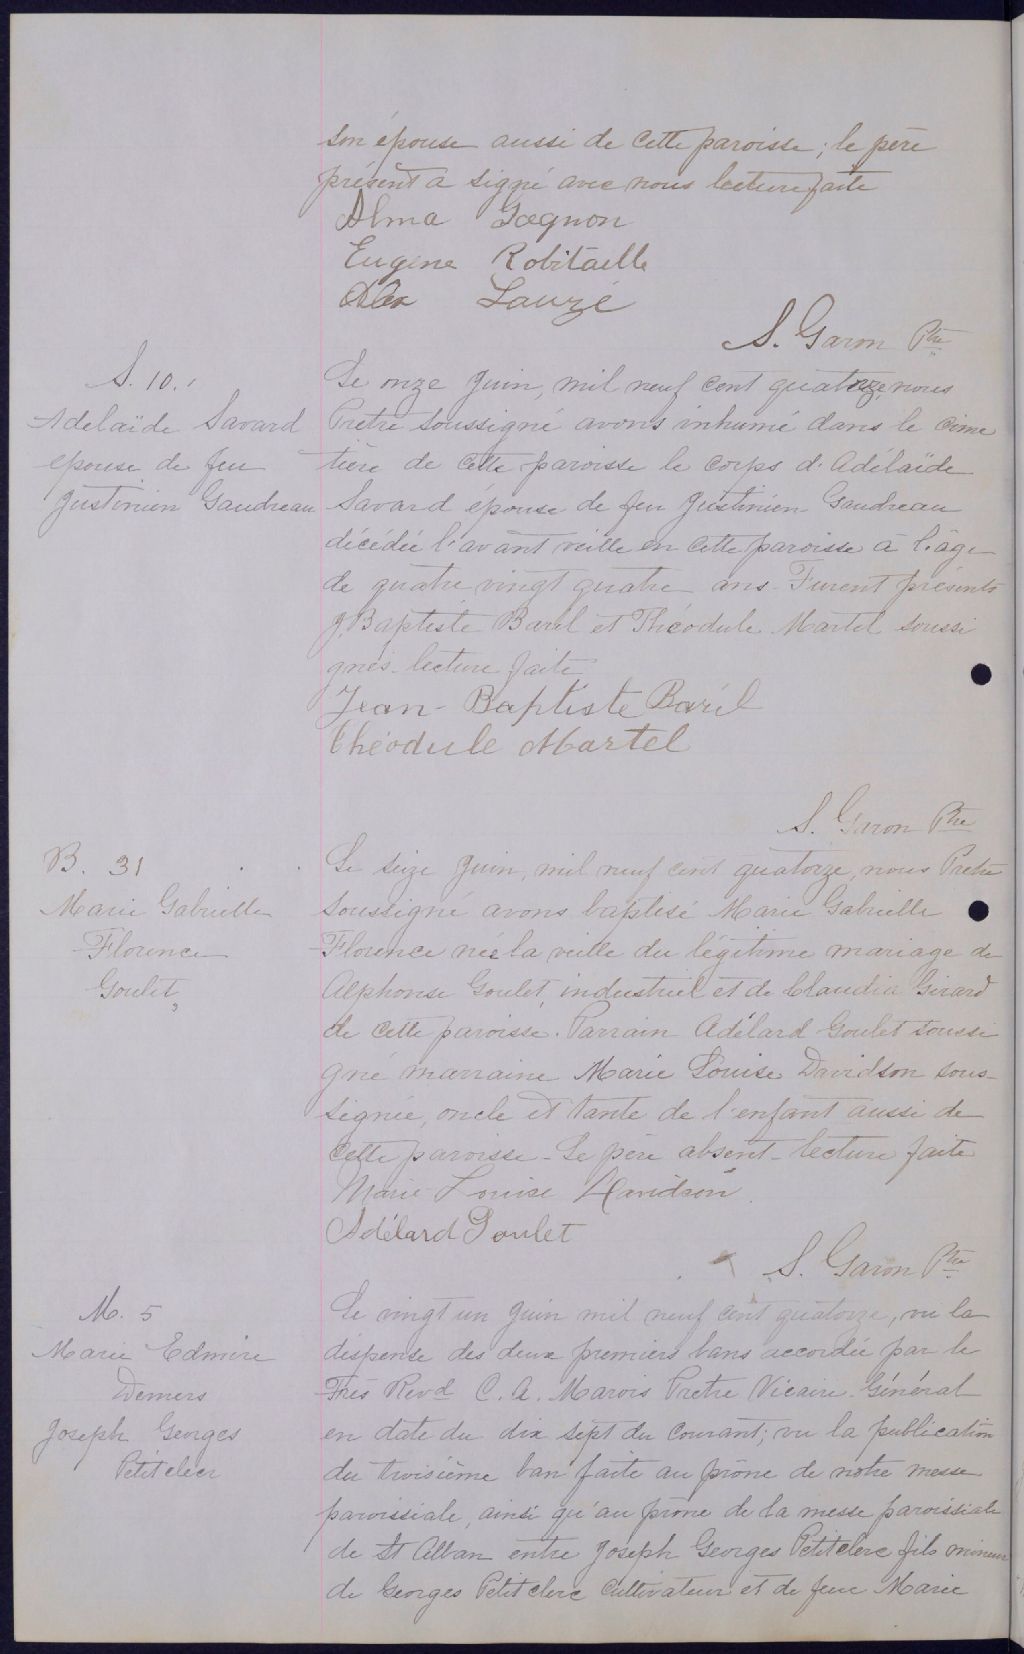 son épouse aussi de cette paroisse; le père
présent a signé avec nous lecture faite
Alma Gagnon
Eugène Robitaille
Alex Lauzé
S. Garon Ptre
S. 10.
Adelaïde Savard
épouse de feu
Justinien Gaudreau
Le onze Juin, mil neuf cent quatorze, nous
Pretre soussigné avons inhumé dans le cime
tière de cette paroisse le corps d'Adélaïde
Savard épouse de feu Justinien Gaudreau
décédée l'avant veille en cette paroisse à l'âge
de quatre vingt quatre ans - Furent présents
J. Baptiste Baril et Théodule Martel soussi
gnés - lecture faite
Jean-Baptiste Baril
Théodule Martel
S. Garon Ptre
B. 31
Marie Gabrielle
Florence
Goulet
Le seize Juin, mil neuf cent quatorze, nous Pretre
soussigné avons baptisé Marie Gabrielle
Florence née la veille du légitime mariage de
Alphonse Goulet, industriel et de Claudia Girard
de cette paroisse. Parrain Adélard Goulet soussi
gné marraine Marie Louise Davidson sous-
signée, oncle et tante de l'enfant aussi de
cette paroisse - Le père absent - lecture faite
Marie Louise Davidson
Adélard Goulet
S. Garon Ptre
M. 5
Marie Edmire
Demers
Joseph Georges
Petitclerc
Le vingt un Juin mil neuf cent quatorze, vu la
dispense des deux premiers bans accordée par le
Très Revd C. A. Marois Pretre Vicaire Général
en date du dix sept du courant; vu la publication
du troisième ban faite au prône de notre messe
paroissiale, ainsi qu'au prône de la messe paroissiale
de St Alban entre Joseph Georges Petitclerc fils mineur
de Georges Petitclerc Cultivateur et de feue Marie